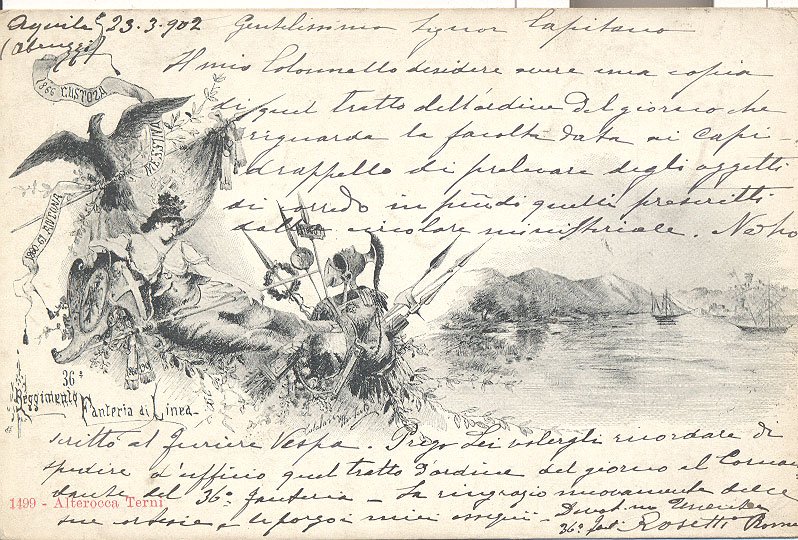 Aquila 23.3.902 Gentilissimo Signor Capitano
(Abruzzi)
Il mio Colonnello desidera avere una copia
di quel tratto dell'ordine del giorno che
riguarda la facoltà data ai Capi-
drappello di prelevare degli oggetti
di corredo in più di quelli prescritti
dalla circolare ministeriale. Ne ho
1866 CUSTOZA
MESSINA
1860-61 ANCONA
36º
Reggimento
Fanteria di Linea
scritto al furiere Vespa. Prego Lei volergli ricordare di
spedire d'ufficio quel tratto d'ordine del giorno al Coman-
dante del 36º fanteria - La ringrazio nuovamente delle
sue cortesie, e le porgo i miei ossequi - Devot.mo
36º Rosetti
1499 - Alterocca Terni